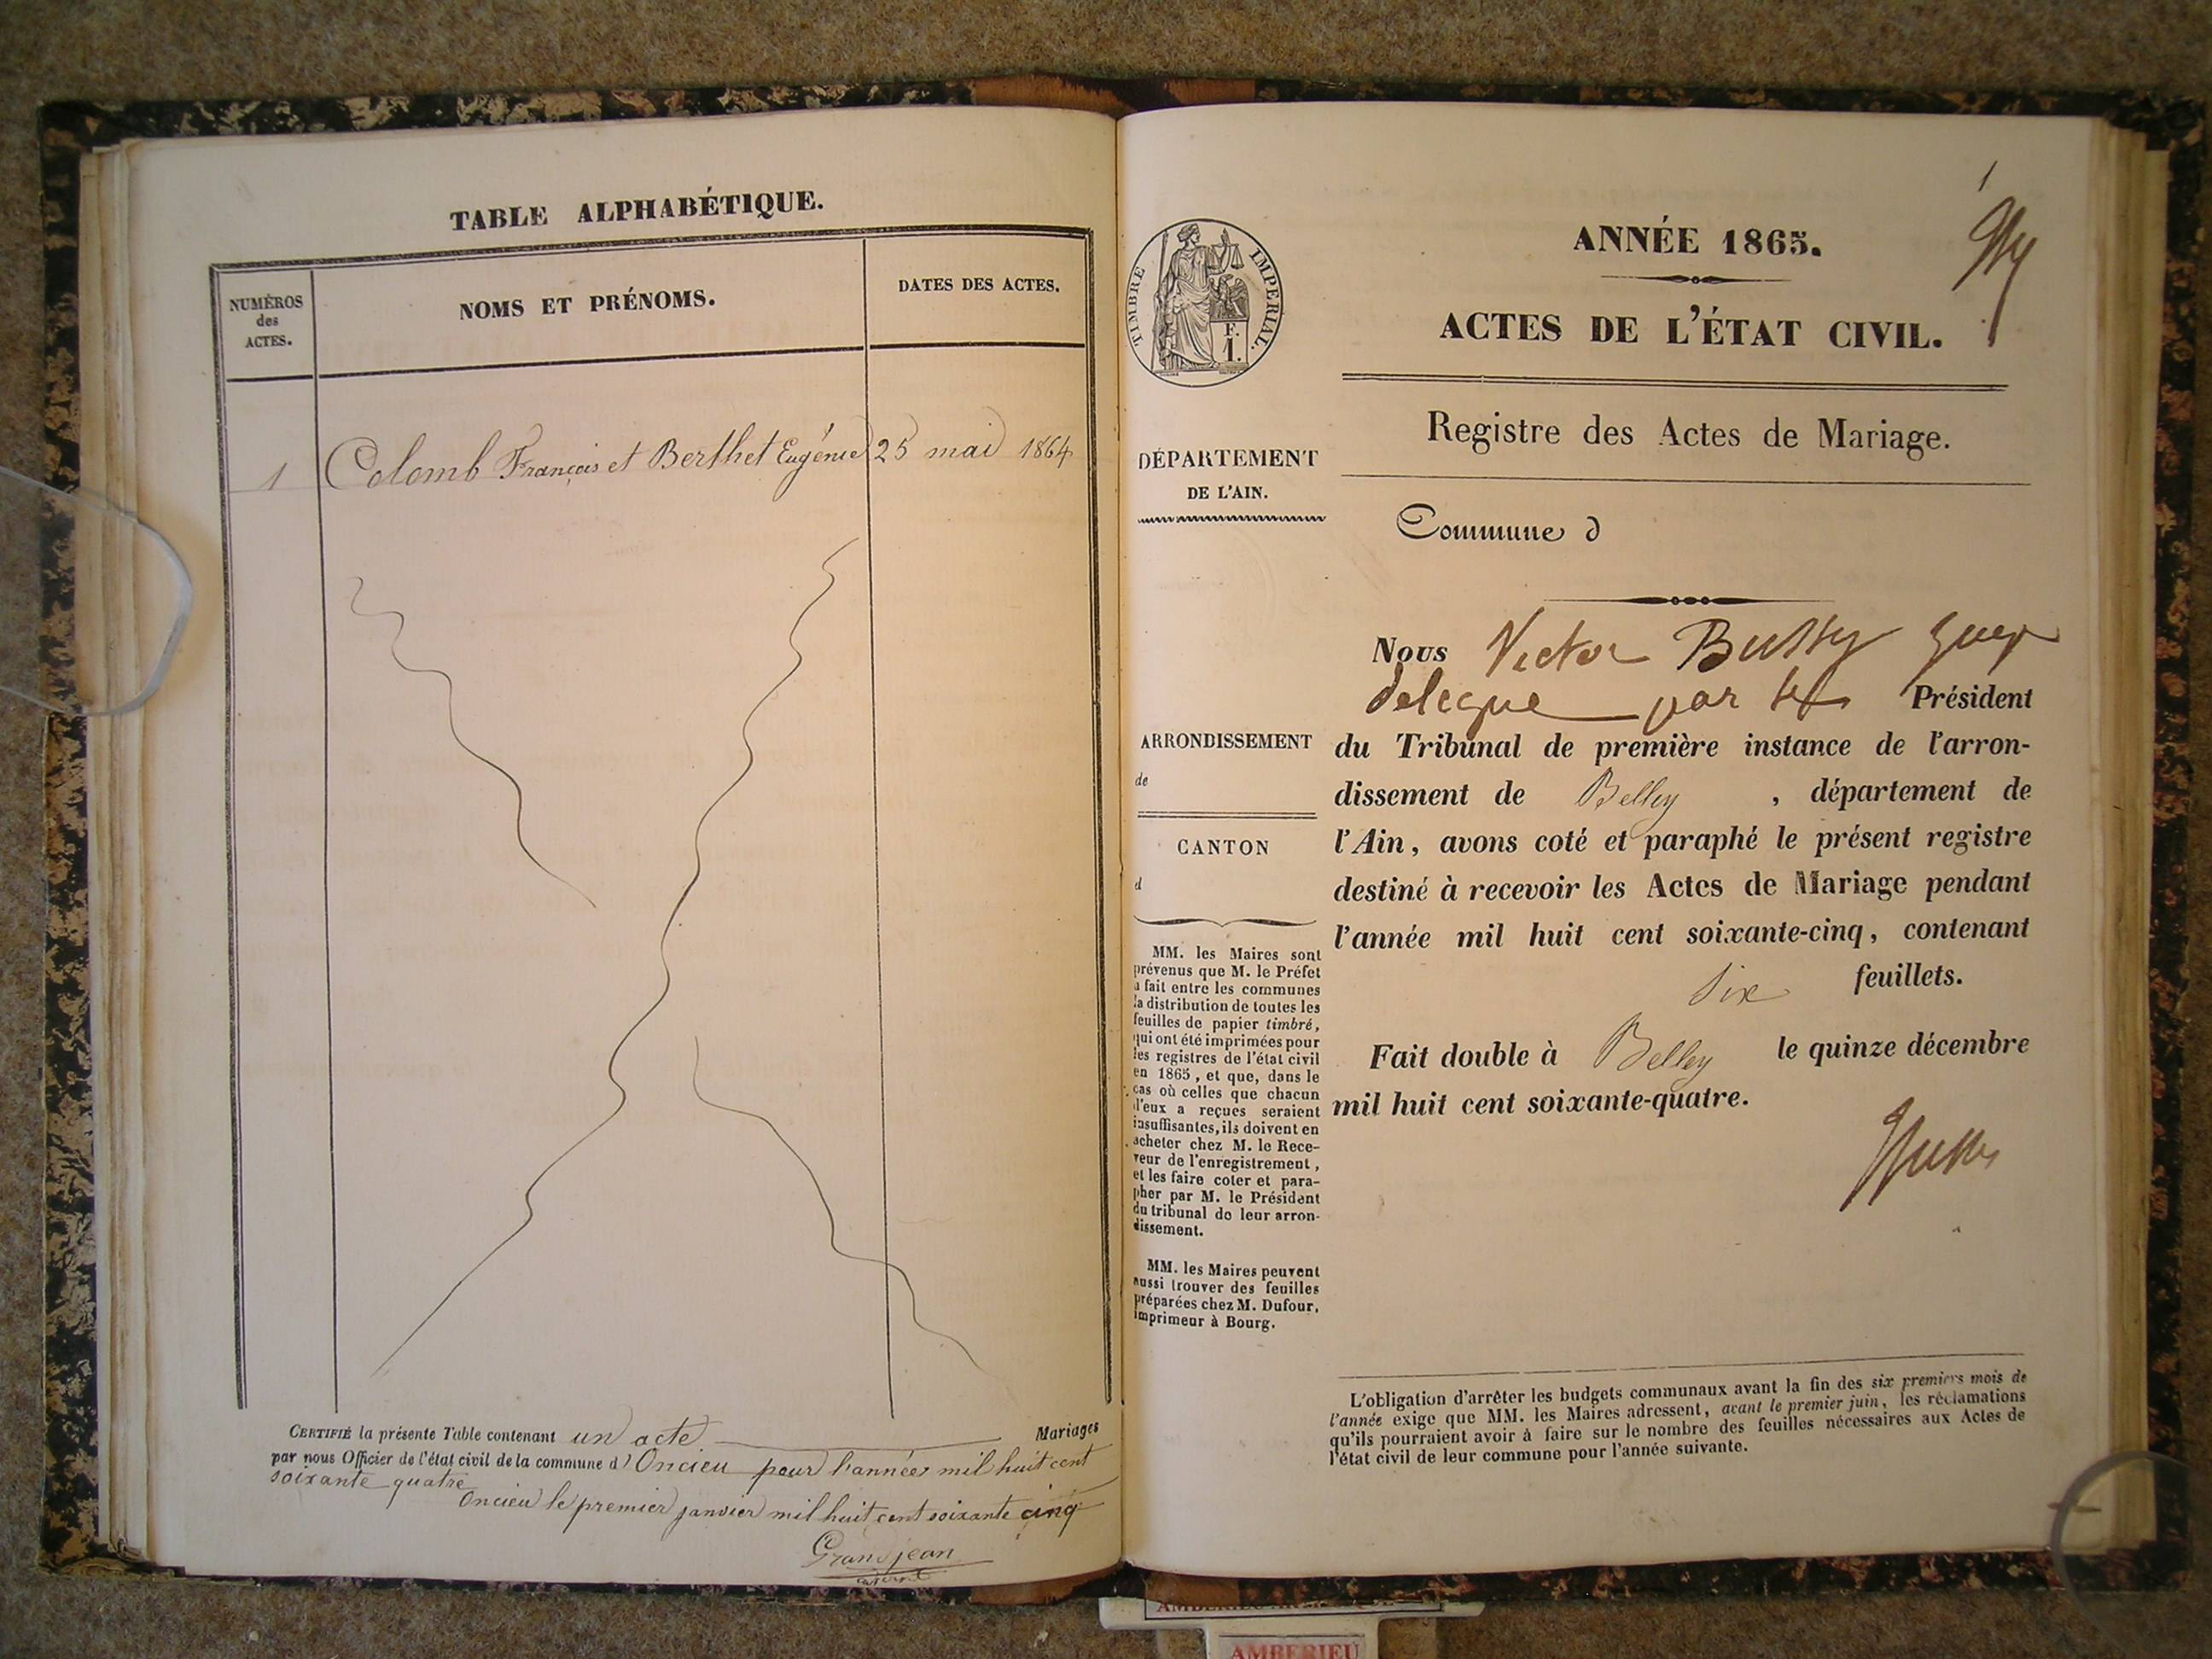 TABLE ALPHABÉTIQUE.
NUMÉROS
des
ACTES.
NOMS ET PRÉNOMS.
DATES DES ACTES.
1
Colomb François et Berthet Eugénie
25 mai 1864
CERTIFIÉ la présente Table contenant un acte Mariages
par nous Officier de l'état civil de la commune d'Oncieu pour l'année mil huit cent
soixante quatre
Oncieu le premier janvier mil huit cent soixante cinq
Grandjean
TIMBRE IMPERIAL
F.
1.
DÉPARTEMENT
DE L'AIN.
ARRONDISSEMENT
de
CANTON
d
MM. les Maires sont
prévenus que M. le Préfet
a fait entre les communes
la distribution de toutes les
feuilles de papier timbré,
qui ont été imprimées pour
les registres de l'état civil
en 1865, et que, dans le
cas où celles que chacun
d'eux a reçues seraient
insuffisantes, ils doivent en
acheter chez M. le Rece-
veur de l'enregistrement,
et les faire coter et para-
pher par M. le Président
du tribunal de leur arron-
dissement.
MM. les Maires peuvent
aussi trouver des feuilles
préparées chez M. Dufour,
imprimeur à Bourg.
ANNÉE 1865.
ACTES DE L'ÉTAT CIVIL.
Registre des Actes de Mariage.
Commune d
Nous Victor Bussy juge
delegue par Président
du Tribunal de première instance de l'arron-
dissement de Belley, département de
l'Ain, avons coté et paraphé le présent registre
destiné à recevoir les Actes de Mariage pendant
l'année mil huit cent soixante-cinq, contenant
six feuillets.
Fait double à Belley le quinze décembre
mil huit cent soixante-quatre.
L'obligation d'arrêter les budgets communaux avant la fin des six premiers mois de
l'année exige que MM. les Maires adressent, avant le premier juin, les réclamations
qu'ils pourraient avoir à faire sur le nombre des feuilles nécessaires aux Actes de
l'état civil de leur commune pour l'année suivante.
AMBERIEU